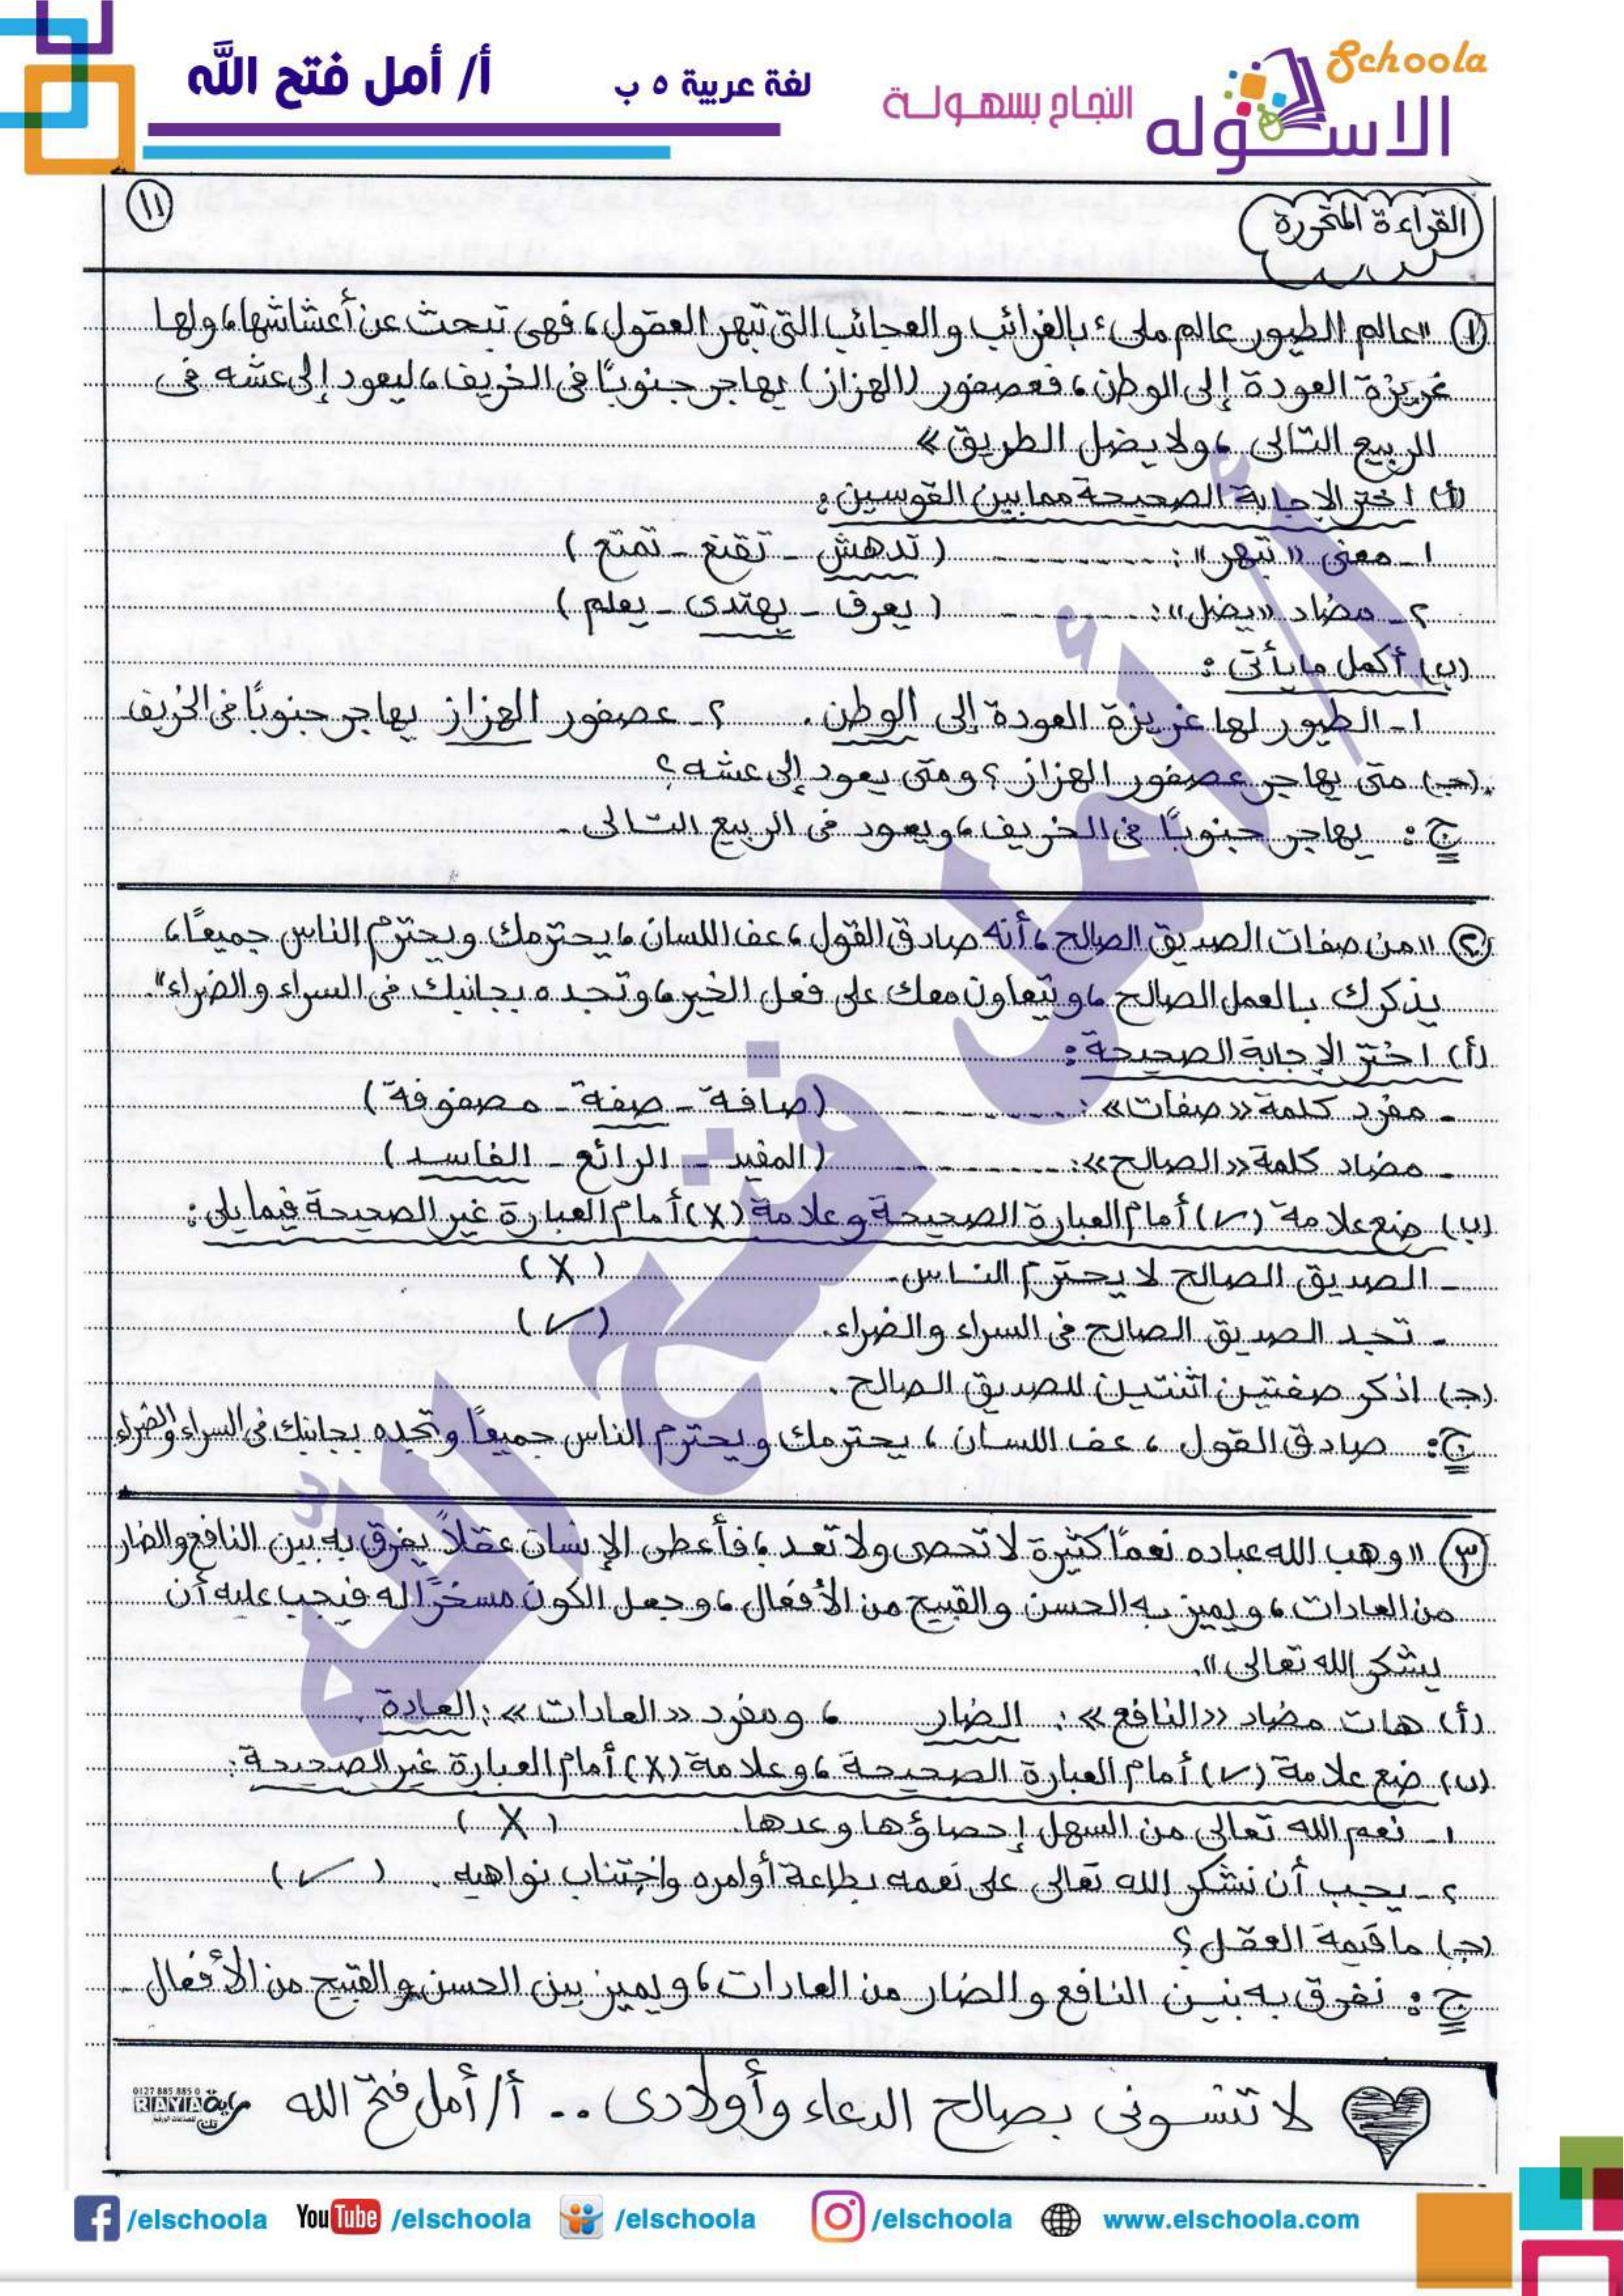 Schoola
الاسكوله
النجاح بسهولة
لغة عربية ٥ ب
أ/ أمل فتح الله
١١
القراءة المتحررة
١ "عالم الطيور عالم ملىء بالغرائب والعجائب التى تبهر العقول، فهى تبحث عن أعشاشها، ولها
غريزة العودة إلى الوطن، فعصفور (الهزاز) يهاجر جنوبًا فى الخريف، ليعود إلى عشه فى
الربيع التالى، ولا يضل الطريق»
(أ) اختر الإجابة الصحيحة مما بين القوسين:
١- معنى "تبهر": ............ (تدهش - تقنع - تمتع)
٢- مضاد "يضل": ............ (يعرف - يهتدى - يعلم)
(ب) أكمل ما يأتى:
١- الطيور لها غريزة العودة إلى الوطن. ٢- عصفور الهزاز يهاجر جنوبًا فى الخريف
(جـ) متى يهاجر عصفور الهزاز؟ ومتى يعود إلى عشه؟
ج: يهاجر جنوبًا فى الخريف، ويعود فى الربيع التالى.
٢ "من صفات الصديق الصالح، أنه صادق القول، عف اللسان، يحترمك ويحترم الناس جميعًا،
يذكرك بالعمل الصالح، ويتعاون معك على فعل الخير، وتجده بجانبك فى السراء والضراء".
(أ) اختر الإجابة الصحيحة:
- مفرد كلمة «صفات»: ............ (صافة - صفة - مصفوفة)
- مضاد كلمة «الصالح»: ............ (المفيد - الرائع - الفاسد)
(ب) ضع علامة (✓) أمام العبارة الصحيحة وعلامة (X) أمام العبارة غير الصحيحة فيما يلى:
- الصديق الصالح لا يحترم الناس. (X)
- تجد الصديق الصالح فى السراء والضراء. (✓)
(جـ) اذكر صفتين اثنتين للصديق الصالح.
ج: صادق القول، عف اللسان، يحترمك ويحترم الناس جميعًا وتجده بجانبك فى السراء والضراء
٣ "وهب الله عباده نعمًا كثيرة لا تحصى ولا تعد، فأعطى الإنسان عقلاً يفرق به بين النافع والضار
من العادات، ويميز به الحسن والقبيح من الأفعال، وجعل الكون مسخرًا له فيجب عليه أن
يشكر الله تعالى".
(أ) هات مضاد «النافع»: الضار ، ومفرد «العادات»: العادة.
(ب) ضع علامة (✓) أمام العبارة الصحيحة، وعلامة (X) أمام العبارة غير الصحيحة:
١- نعم الله تعالى من السهل إحصاؤها وعدها. (X)
٢- يجب أن نشكر الله تعالى على نعمه بطاعة أوامره واجتناب نواهيه. (✓)
(جـ) ما قيمة العقل؟
ج: نفرق به بين النافع والضار من العادات، ويميز بين الحسن والقبيح من الأفعال.
لا تنسونى بصالح الدعاء وأولادى.. أ/ أمل فتح الله
0127 885 885 0
RAYA
راية
أ/ أمل فتح الله
/elschoola
YouTube /elschoola
/elschoola
/elschoola
www.elschoola.com